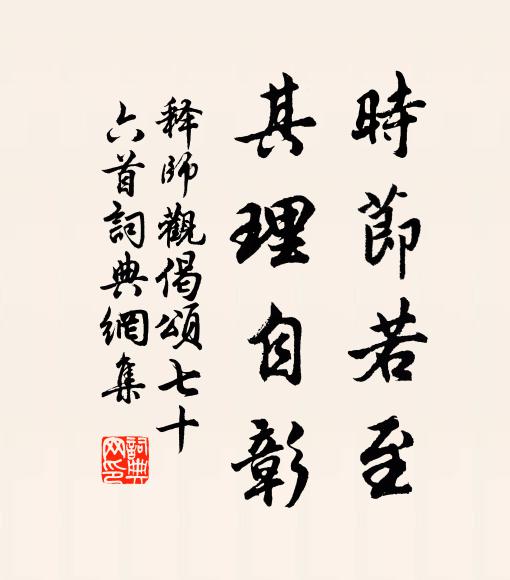 時節若至
其理自彰
释師觀偈頌七十
六首詞典網集
詞典网印